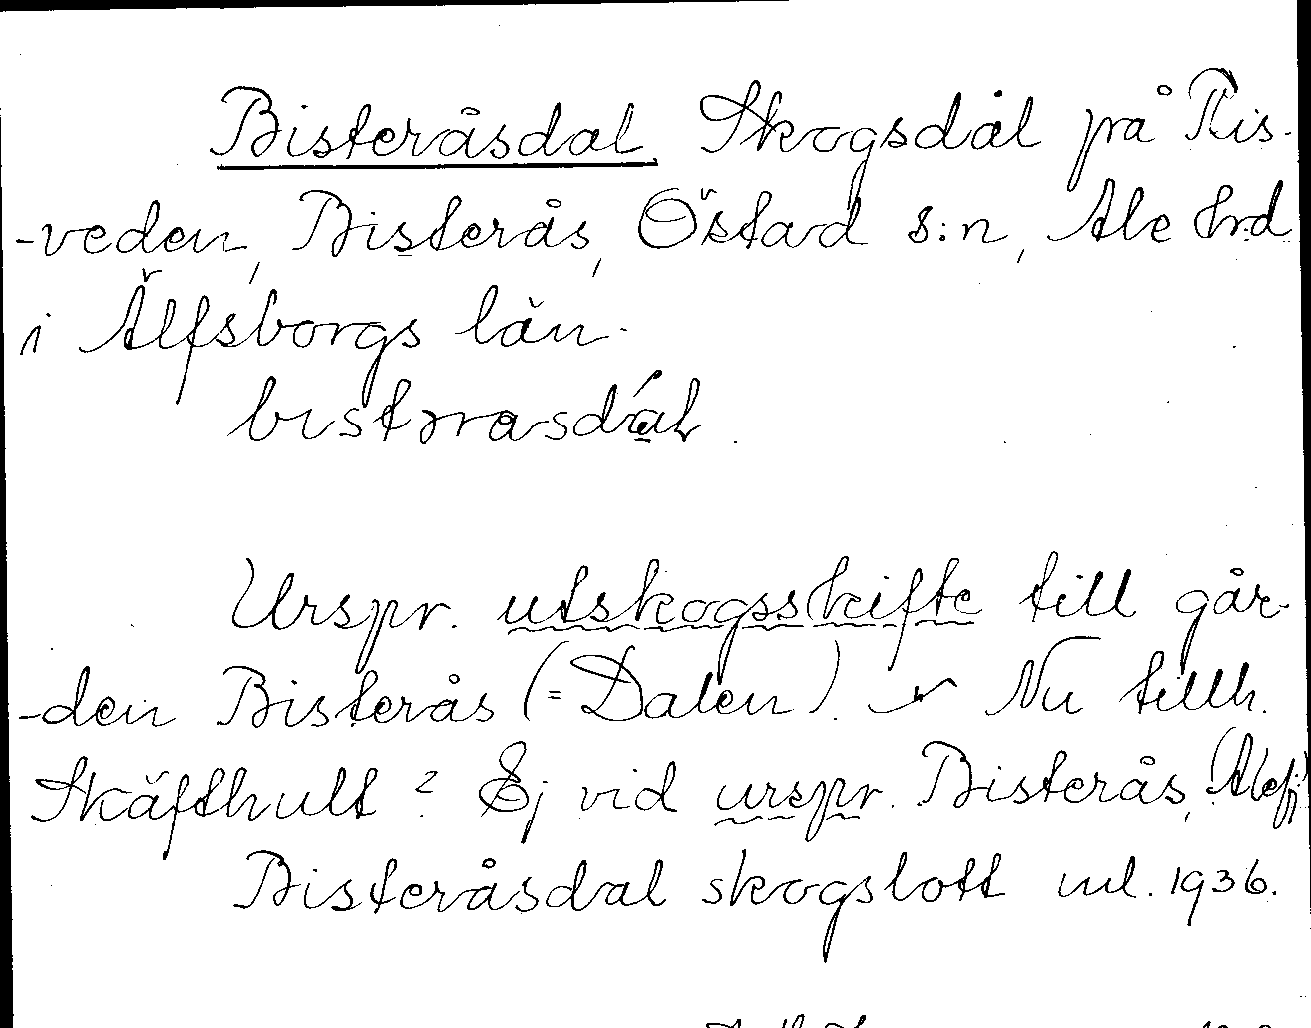 Bisteråsdal. Skogsdal på Ris-
-veden, Bisterås, Östad s:n, Ale hrd
i Älfsborgs län.
Urspr. utskogsskifte till går-
-den Bisterås (= Dalen). Nu tillh.
Skäfthult? Ej vid urspr. Bisterås,
Bisteråsdal skogslott utl. 1936.